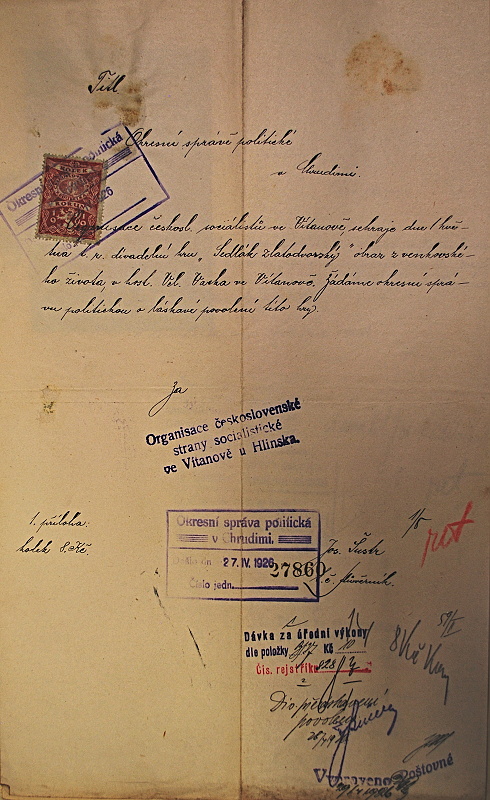 Titl
Okresní správě politické
v Chrudimi.
Okresní politická
26
Organisace českosl. socialistů ve Vítanově, sehraje dne 1 kvě-
tna t. r. divadelní hru „Sedlák Zlatodvorský" obraz z venkovské-
ho života v host. Vil. Vaska ve Vítanově. Žádáme okresní sprá-
vu politickou o láskavé povolení této hry.
Za
Organisace československé
strany socialistické
ve Vítanově u Hlinska.
1. příloha:
kolek 8 Kč.
Okresní správa politická
v Chrudimi.
Došlo dne 27. IV. 1926
27860
Číslo jedn.
Jos. Šustr
t. č. důvěrník.
1/5
Dávka za úřední výkony
dle položky Kč 10
Čís. rejstříku 828
8 Kč
Div. představení
povoleno
Vypraveno Poštovné